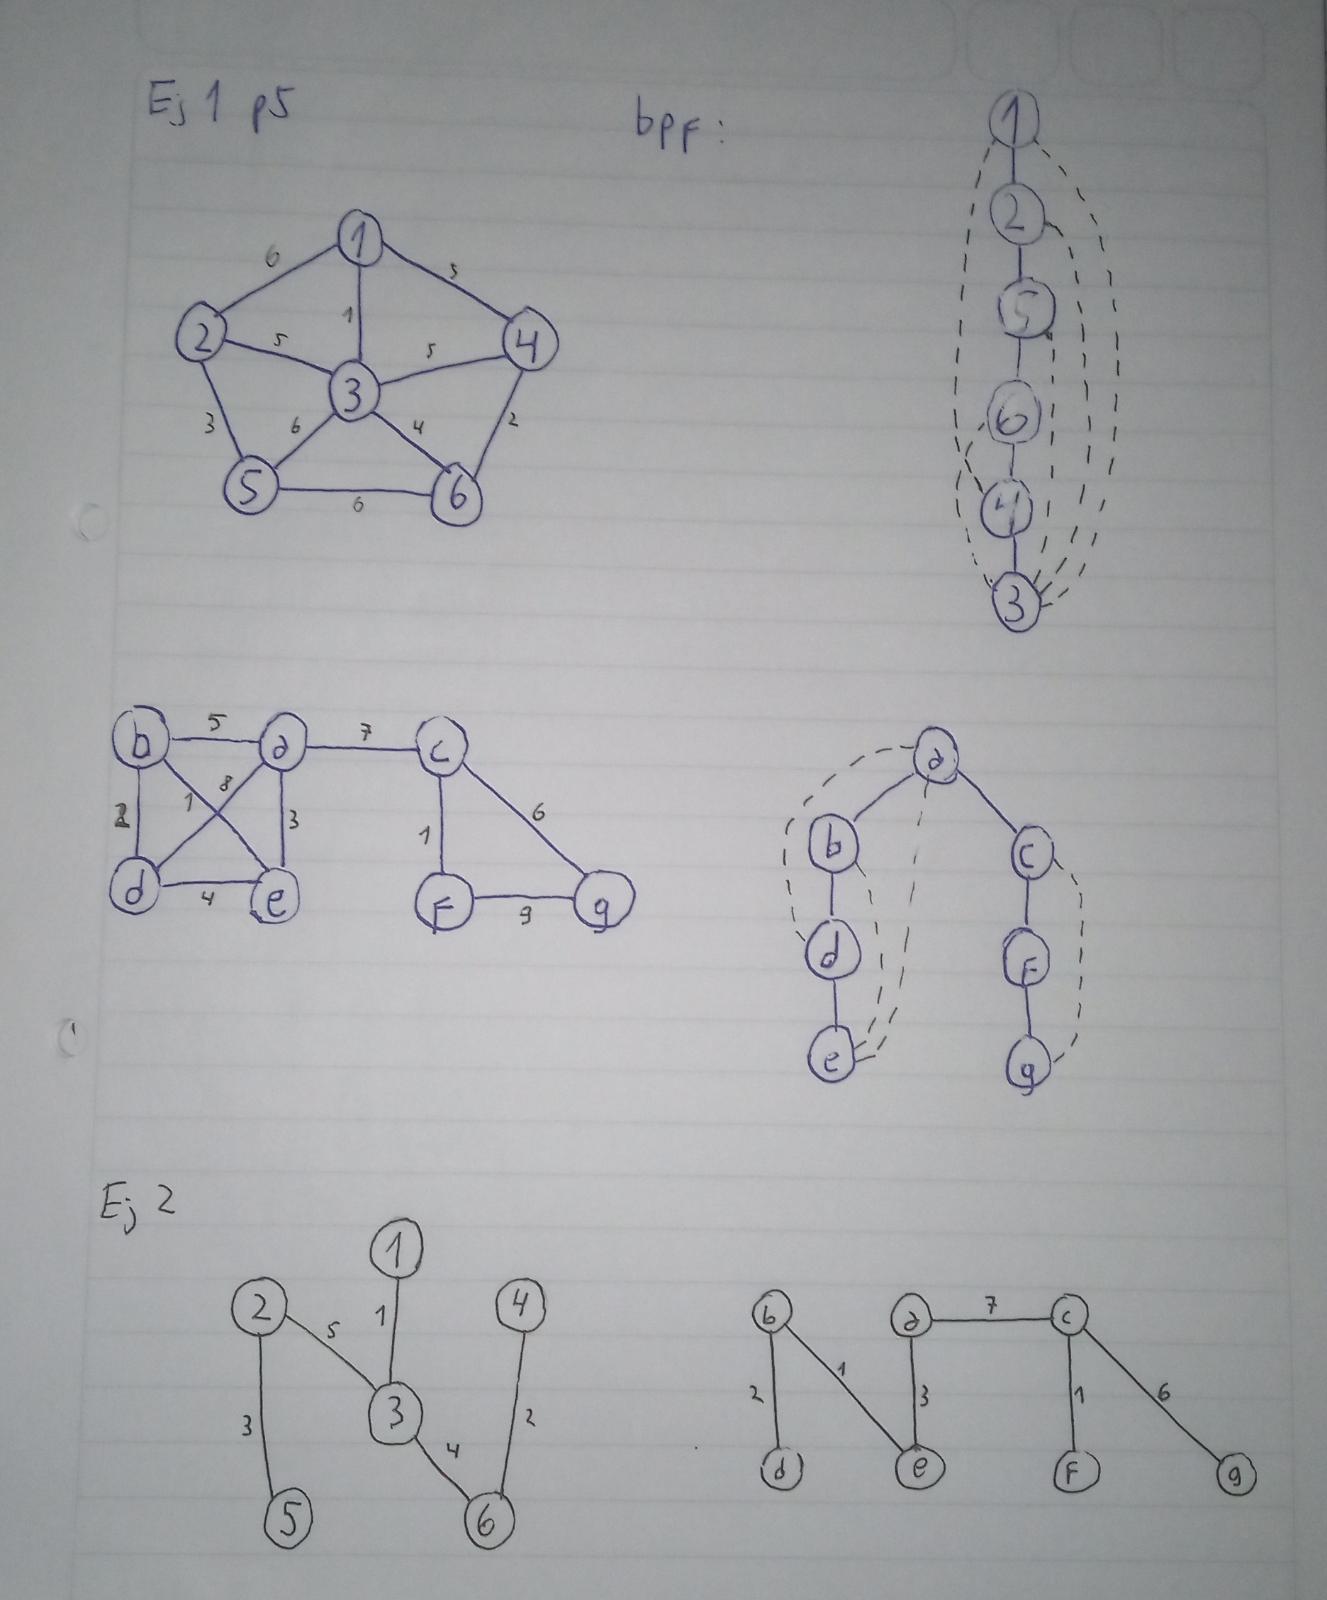 Ej 1 p5
bpf:
1
6 5
1
2 5 5 4
3
3 6 4 2
5 6 6
1
2
5
6
4
3
b 5 a 7 c
2 1 8 3 1 6
d 4 e F 9 g
a
b c
d F
e g
Ej 2
1
2 4
5 1
3
3 4 2
5 6
b a 7 c
2 1 3 1 6
d e F g